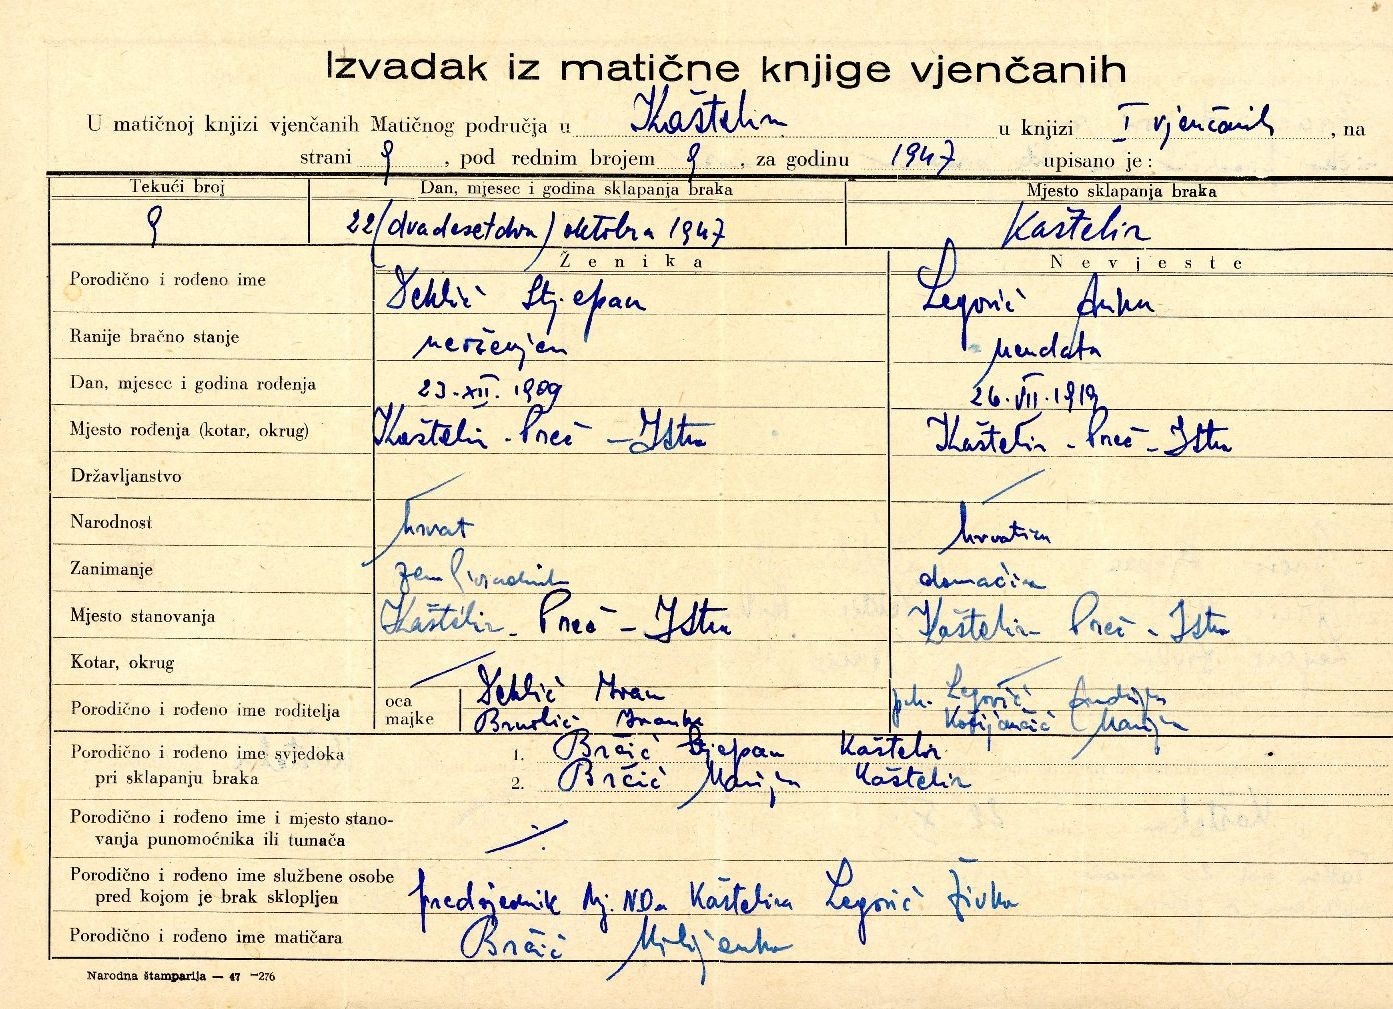 Izvadak iz matične knjige vjenčanih
U matičnoj knjizi vjenčanih Matičnog područja u Kaštelir u knjizi I vjenčanih, na
strani 9, pod rednim brojem 9, za godinu 1947 upisano je:
Tekući broj Dan, mjesec i godina sklapanja braka Mjesto sklapanja braka
9 22 (dvadesetdva) oktobra 1947 Kaštelir
Ženika Nevjeste
Porodično i rođeno ime Deklić Stjepan Legović Anka
Ranije bračno stanje neoženjen neudata
Dan, mjesec i godina rođenja 23.XII.1909 26.VII.1919
Mjesto rođenja (kotar, okrug) Kaštelir - Poreč - Istra Kaštelir - Poreč - Istra
Državljanstvo
Narodnost hrvat hrvatica
Zanimanje zemljoradnik domaćica
Mjesto stanovanja Kaštelir - Poreč - Istra Kaštelir Poreč - Istra
Kotar, okrug
Porodično i rođeno ime roditelja
oca Deklić Ivan pok. Legović Andrija
majke Ivanka Marija
Porodično i rođeno ime svjedoka
pri sklapanju braka
1. Brčić Stjepan Kaštelir
2. Brčić Marija Kaštelir
Porodično i rođeno ime i mjesto stano-
vanja punomoćnika ili tumača
Porodično i rođeno ime službene osobe
pred kojom je brak sklopljen predsjednik Mj. NOa Kaštelira Legović
Porodično i rođeno ime matičara Brčić Milijenko
Narodna štamparija — 47 —276